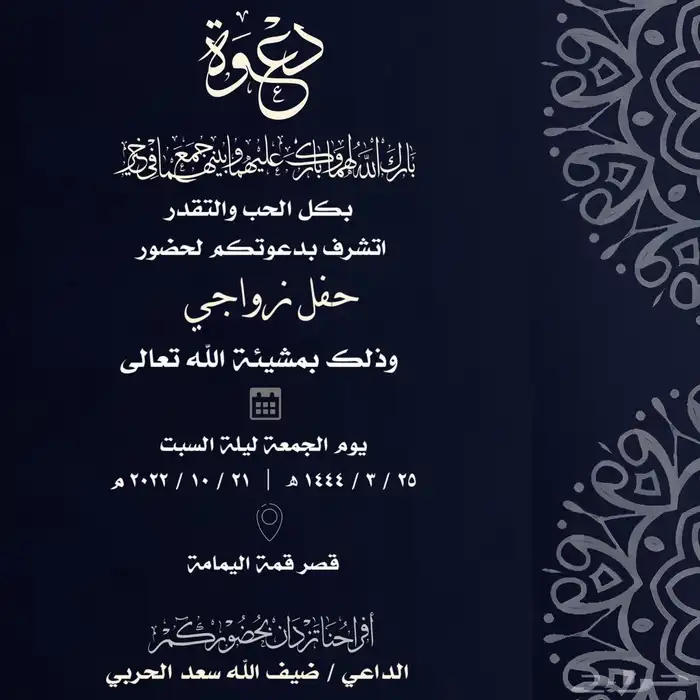 دعوة
بارك الله لهما وبارك عليهما وجمع بينهما في خير
بكل الحب والتقدر
اتشرف بدعوتكم لحضور
حفل زواجي
وذلك بمشيئة الله تعالى
يوم الجمعة ليلة السبت
٢٥ / ٣ / ١٤٤٤ هـ | ٢١ / ١٠ / ٢٠٢٢ م
قصر قمة اليمامة
أفراحنا تزدان بحضوركم
الداعي / ضيف الله سعد الحربي